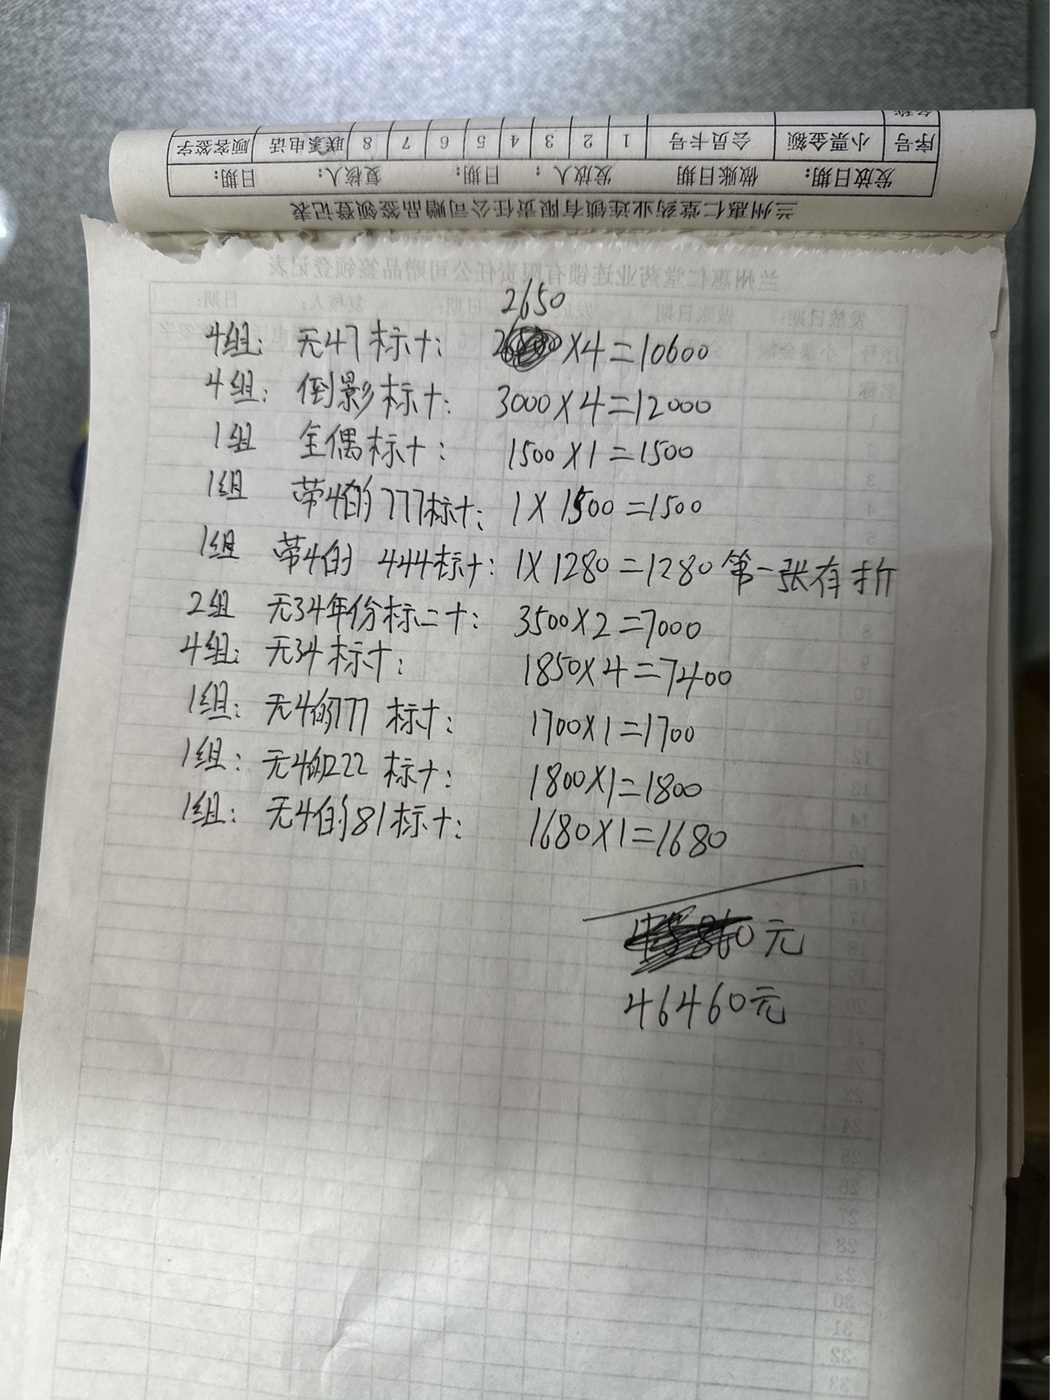 兰州惠仁堂药业连锁有限责任公司赠品签领登记表
发放日期: 做账日期 发放人: 日期: 复核人: 日期:
序号 小票金额 会员卡号 1 2 3 4 5 6 7 8 联系电话 顾客签字
2650
4组: 无47标十: ×4=10600
4组: 倒影标十: 3000×4=12000
1组 全偶标十: 1500×1=1500
1组 带4的777标十: 1×1500=1500
1组 带4的 444标十: 1×1280=1280 第一张有折
2组 无34年份标二十: 3500×2=7000
4组: 无34标十: 1850×4=7400
1组: 无4的777标十: 1700×1=1700
1组: 无4的222标十: 1800×1=1800
1组: 无4的81标十: 1680×1=1680
元
46460元